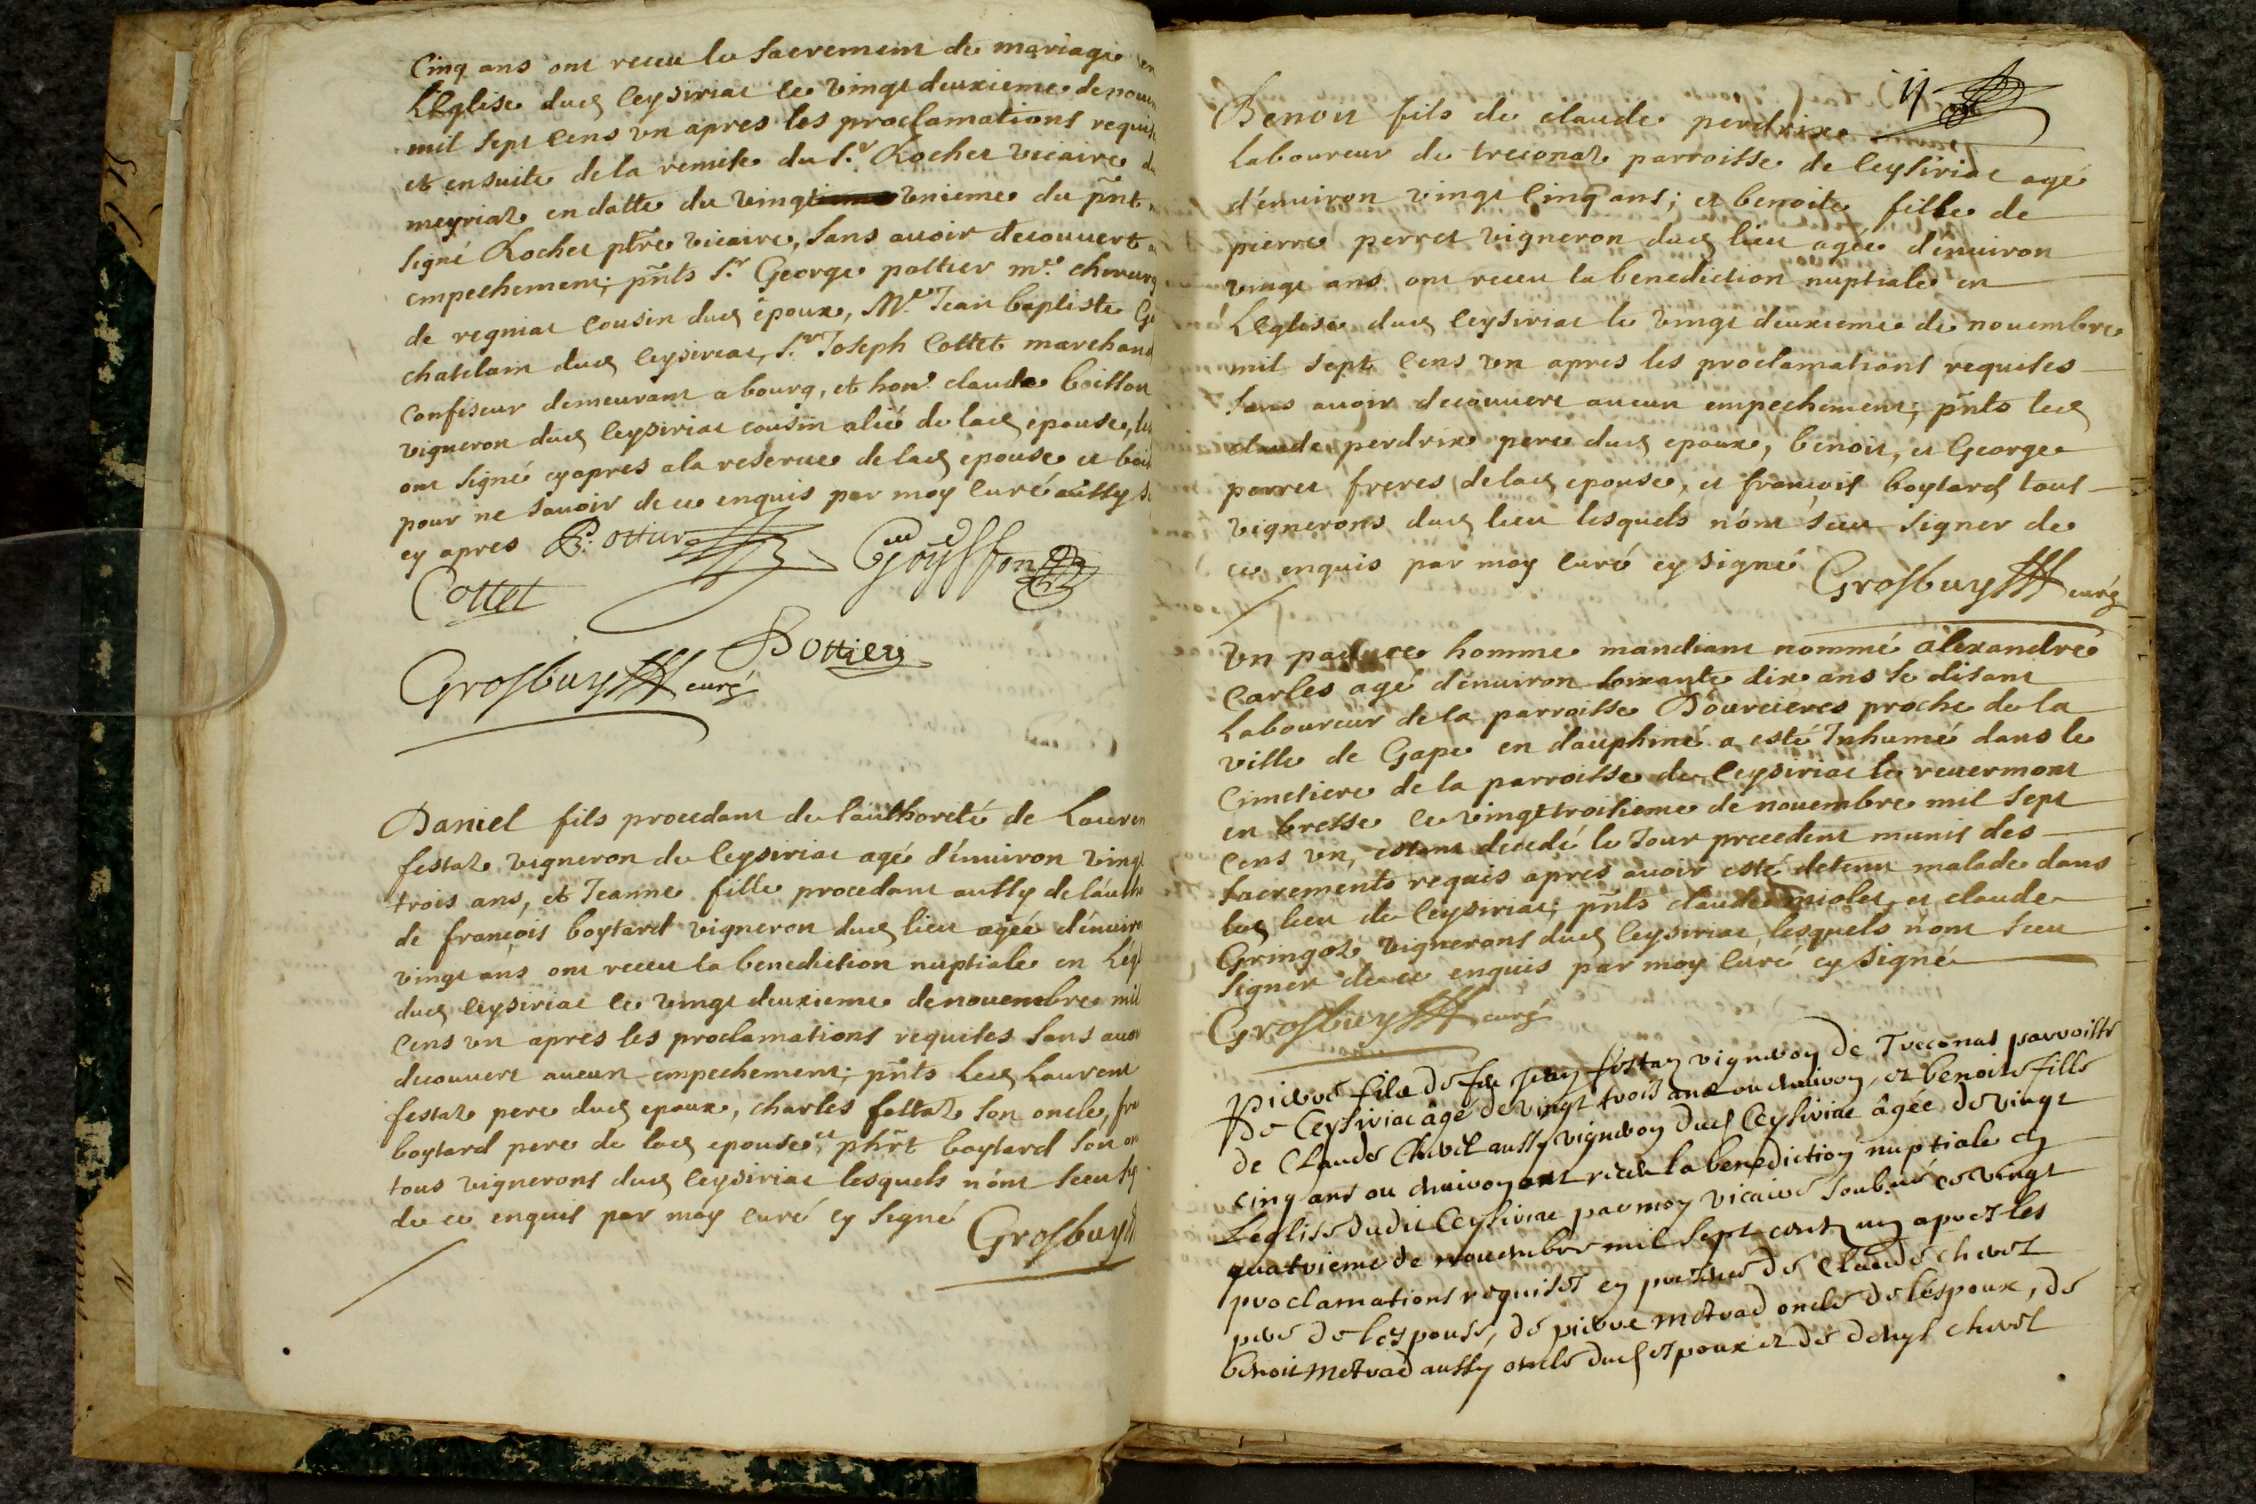 Cinq ans ont receu le Sacrement de mariage en
L'Eglise dud Ceysiriat le vingt deuxieme de novem
mil sept cens un apres les proclamations requis
et ensuite de la remise du Sr. Rochet vicaire de
meyriaz en datte du vingt unieme du pñt
signé Rochet ptre vicaire, sans avoir decouvert a
empechement; pñts Sr. George pottier me. chirurg
de regniat cousin dud époux, Me. Jean baptiste G
chatelain dud Ceysiriat, Sr. Joseph Cottet marchand
Confiseur demeurant a bourg, et hon. claude boisson
vigneron dud Ceysiriat cousin alié de lad epouse, les
ont signé cy apres a la reserve de lad epouse et boi
pour ne savoir de ce enquis par moy curé aussy s
cy apres P. ottier Goyffon
Cottet
Pottier
Grosbuy curé
Daniel fils procedant de l'authorité de Lauren
festaz vigneron de Ceysiriat agé d'environ vingt
trois ans, et Jeanne fille procedant aussy de l'auth
de françois boytard vigneron dud lieu agée d'enviro
vingt ans ont receu la benediction nuptiale en L'eg
dud Ceysiriat le vingt deuxieme de novembre mil
Cens un apres les proclamations requises sans avoi
decouvert aucun empechement; pñts Led Laurent
festaz pere dud epoux, charles festaz son oncle, fra
boytard pere de lad epouse, et phrt boytard son on
tous vignerons dud Ceysiriat lesquels n'ont sceu sig
de ce enquis par moy curé cy signé
Grosbuy
11
Benoit fils de claude perdrix
Laboureur de treconaz parroisse de Ceysiriat agé
d'environ vingt Cinq ans; et benoite fille de
pierre perret vigneron dud lieu agée d'environ
vingt ans ont receu la benediction nuptiale en
L'Eglise dud Ceysiriat le vingt deuxieme de novembre
mil sept Cens un apres les proclamations requises
sans avoir decouvert aucun empechement; pñts led
claude perdrix pere dud epoux, benoit, et George
perret freres de lad epouse, et françois boytard tous
vignerons dud lieu lesquels n'ont sceu signer de
ce enquis par moy curé cy signé
Grosbuy curé
Un pauvre homme mandiant nommé alexandre
Carles agé d'environ soixante dix ans se disant
Laboureur de la parroisse Dourcieres proche de la
ville de Gape en dauphiné a esté Inhumé dans le
Cimetiere de la parroisse de Ceysiriat le revermont
en bresse le vingt troisieme de novembre mil sept
Cens un, estant decedé le Jour precedent munis des
sacrements requis apres avoir esté detenu malade dans
led lieu de Ceysiriat; pñts claude miolet, et claude
Gringoz vignerons dud Ceysiriat lesquels n'ont sceu
signer de ce enquis par moy Curé cy signé
Grosbuy curé
Pierre filz de feu Jean festaz vigneron de Treconas parroisse
de Ceysiriac âgé de vingt trois ans ou environ, et benoite fille
de Claude Chevet aussy vigneron dud Ceysiriac âgée de vingt
cinq ans ou environ ont receu la benediction nuptiale en
L'eglise dudit Ceysiriac par moy vicaire soubzné ce vingt
quatrieme de novembre mil sept cent un aprez les
proclamations requises en presence de Claude chevet
pere de l'espouse, de pierre metrad oncle de l'espoux, de
benoit metrad aussy oncle dud espoux et de denys chevet